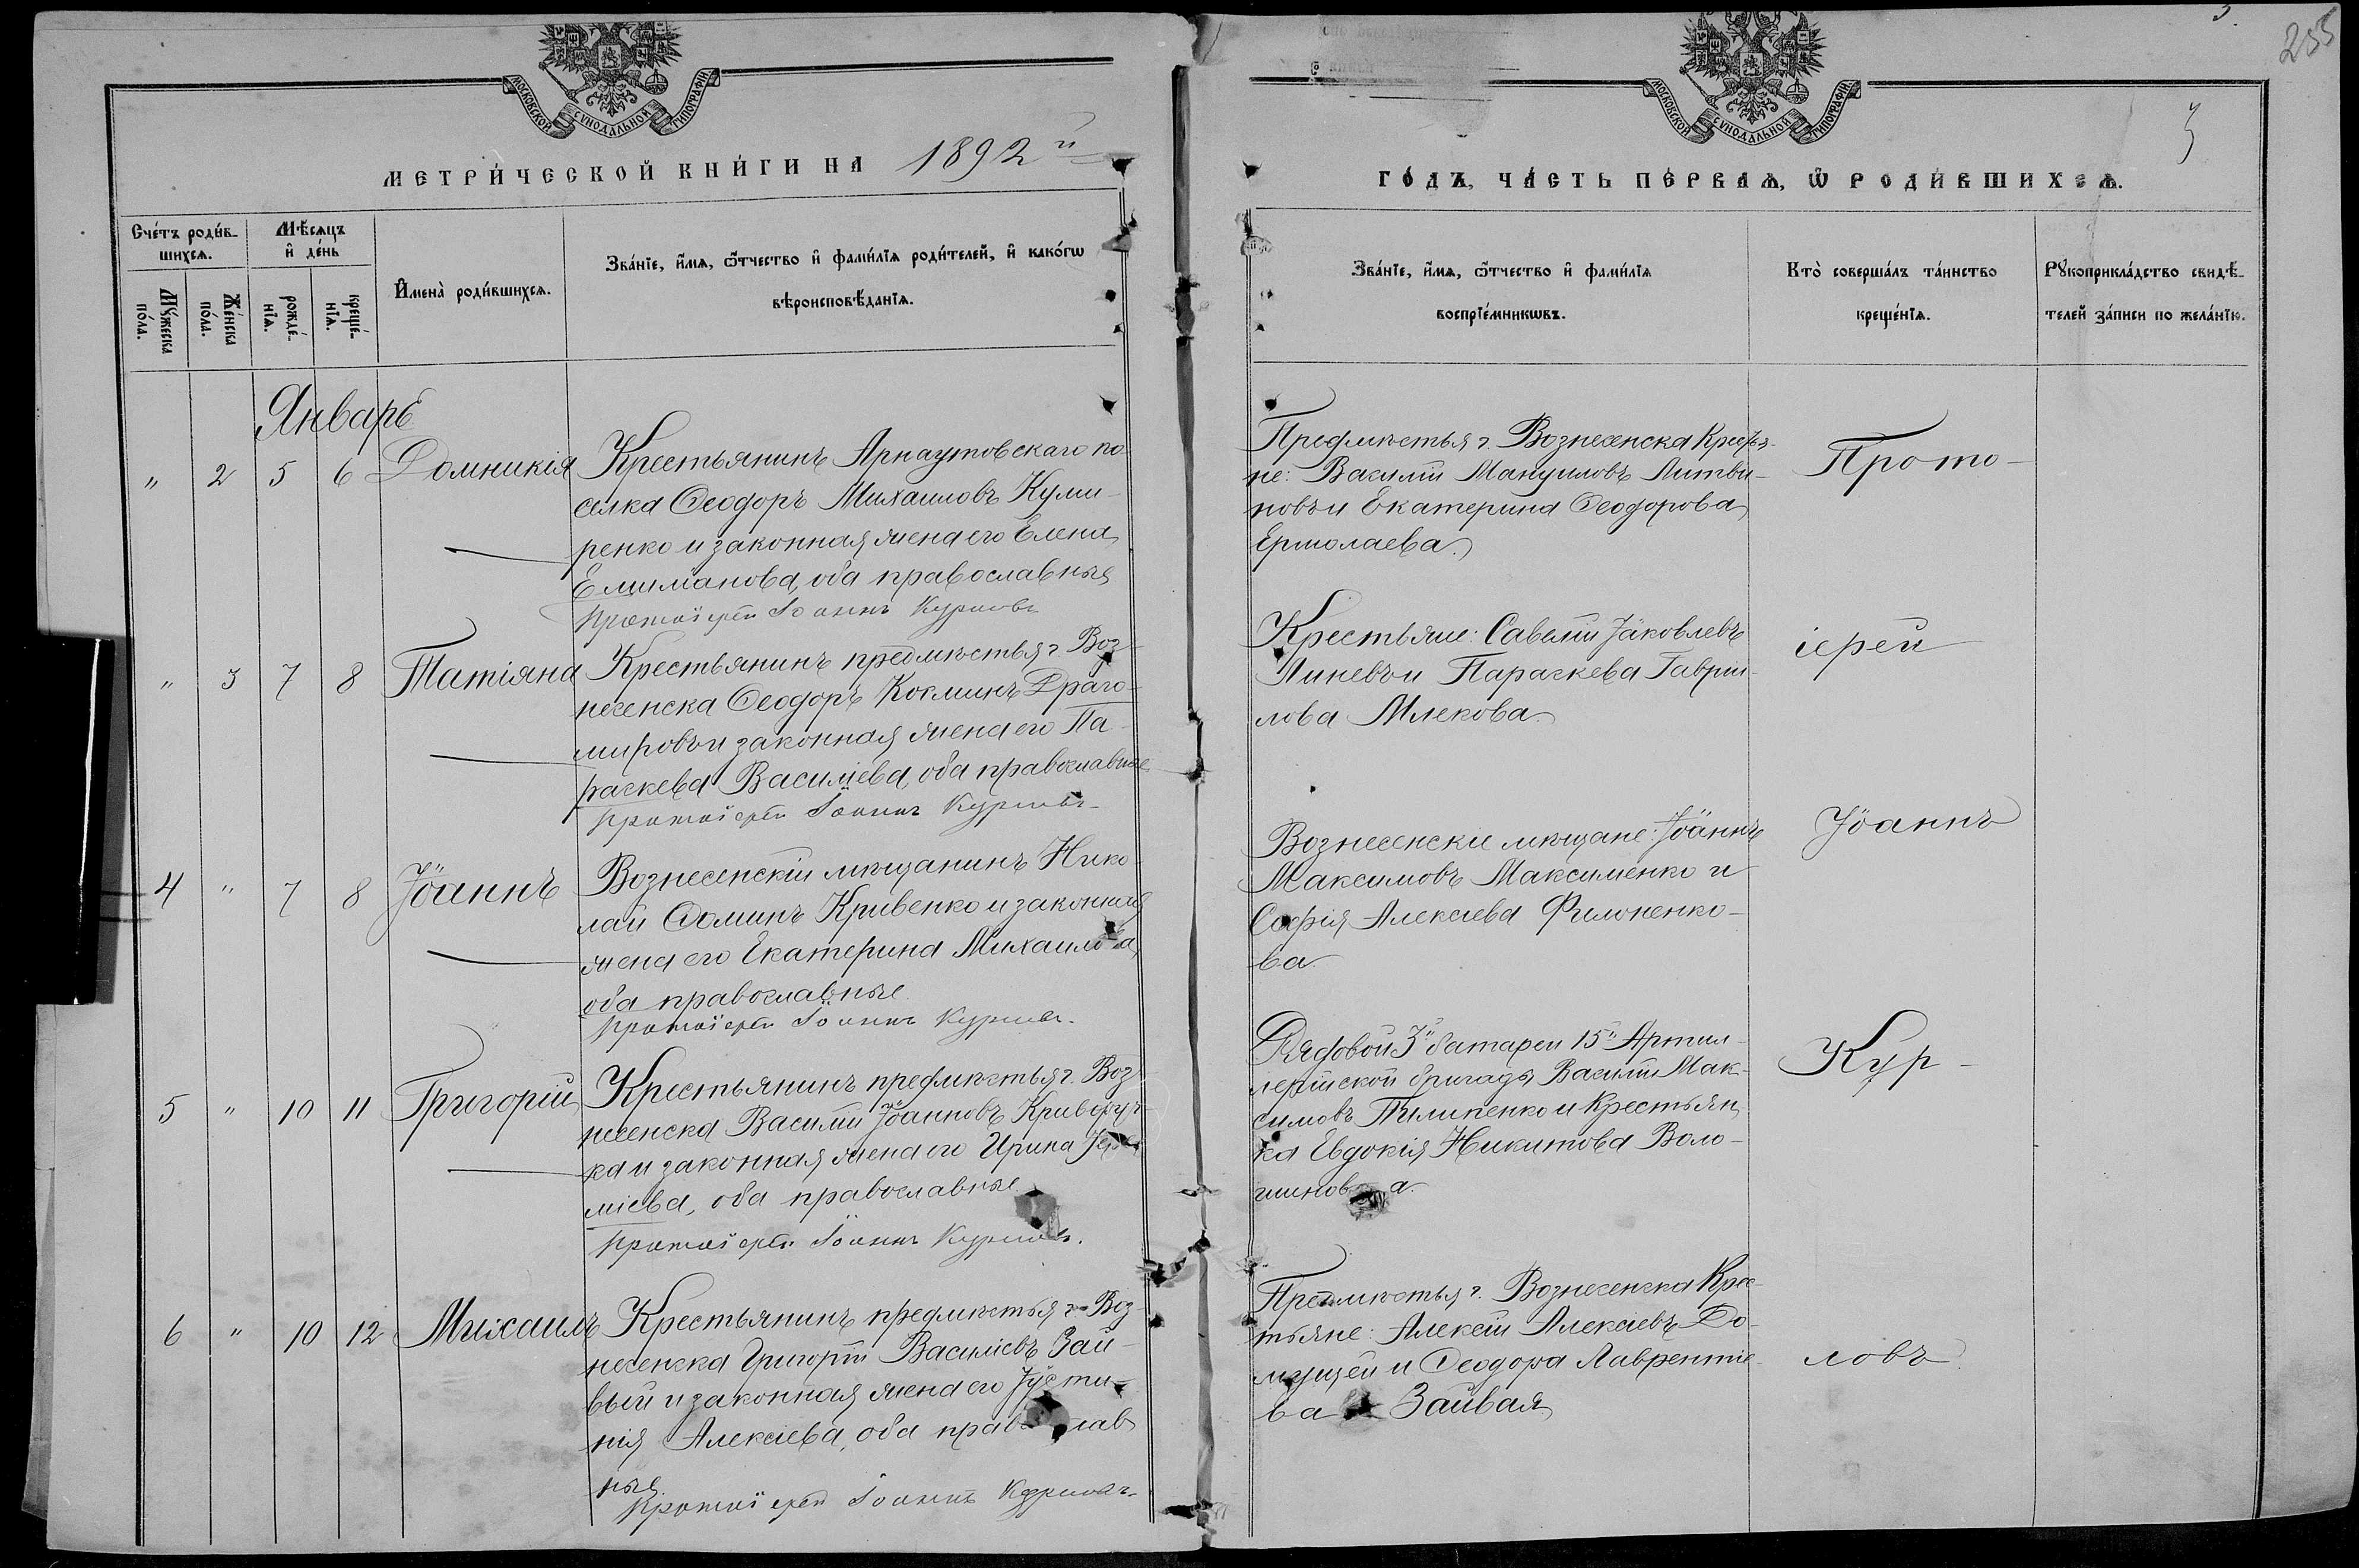 МОСКОВСКОЙ СѴНОДАЛЬНОЙ ТИПОГРАФІИ
МЕТРИ́ЧЕСКОЙ КНИ́ГИ НА 1892й
Сче́тъ роди́в-
шихсѧ.
Мѣ́сѧцъ
и҆ де́нь
Мꙋ́жеска
по́ла.
Же́нска
по́ла.
рожде́-
нїѧ.
креще́-
нїѧ.
И҆мена̀ роди́вшихсѧ.
Зва́нїе, и҆́мѧ, ѻ҆́тчество и҆ фами́лїѧ роди́телей, и҆ како́гѡ
вѣроисповѣ́данїѧ.
Январь
" 2 5 6 Домникія
Крестьянинъ Арнаутовскаго по
селка Ѳеодоръ Михаиловъ Кули-
ренко и законная жена его Елена
Елиманова, оба православные
Протоіерей Іоаннъ Курловъ
" 3 7 8 Татіяна
Крестьянинъ предмѣстья г. Воз-
несенска Ѳеодоръ Косминъ Драго-
мировъ и законная жена его Па-
раскева Василіева, оба православные
Протоіерей Іоаннъ Курловъ
4 " 7 8 Іоаннъ
Вознесенскій мѣщанинъ Нико-
лай Ѳоминъ Кривенко и законная
жена его Екатерина Михаилова,
оба православные
Протоіерей Іоаннъ Курловъ.
5 " 10 11 Григорій
Крестьянинъ предмѣстья г. Воз-
несенска Василій Іоанновъ Криворуч-
ка и законная жена его Ирина
міева, оба православные.
Протоіерей Іоаннъ Курловъ.
6 " 10 12 Михаилъ
Крестьянинъ предмѣстья г. Воз-
несенска Григорій Василіевъ Зай-
вый и законная жена его Іусти-
нія Алексіева, оба православ
ные.
Протоіерей Іоаннъ Курловъ.
255
3
МОСКОВСКОЙ СѴНОДАЛЬНОЙ ТИПОГРАФІИ
ГО́ДЪ, ЧА́СТЬ ПЕ́РВАѦ, Ѿ РОДИ́ВШИХСѦ.
Зва́нїе, и҆́мѧ, ѻ҆́тчество и҆ фами́лїѧ
воспрїе́мникѡвъ.
Кто̀ соверша́лъ та́инство
креще́нїѧ.
Рꙋкоприкла́дство свидѣ́-
телей за́писи по жела́нїю.
Предмѣстья г. Вознесенска Крестья-
не: Василій Мануиловъ Литви-
новъ и Екатерина Ѳеодорова
Ермолаева.
Прото-
Крестьяне: Савелій Іаковлевъ
Линевъ и Параскева Гаврии-
лова Млекова
іерей
Вознесенскіе мѣщане: Іоаннъ
Максимовъ Максименко и
Софія Алексіева Филоненко-
ва
Іоаннъ
Рядовой 3й батареи 15й Артил-
лерійской бригады Василій Мак-
симовъ Пилипенко и Крестьян-
ка Евдокія Никитова Воло-
шинова.
Кур-
Предмѣстья г. Вознесенска Крес-
тьяне: Алексій Алексіевъ До-
мущей и Ѳеодора Лаврентіе-
ва Зайвая
ловъ